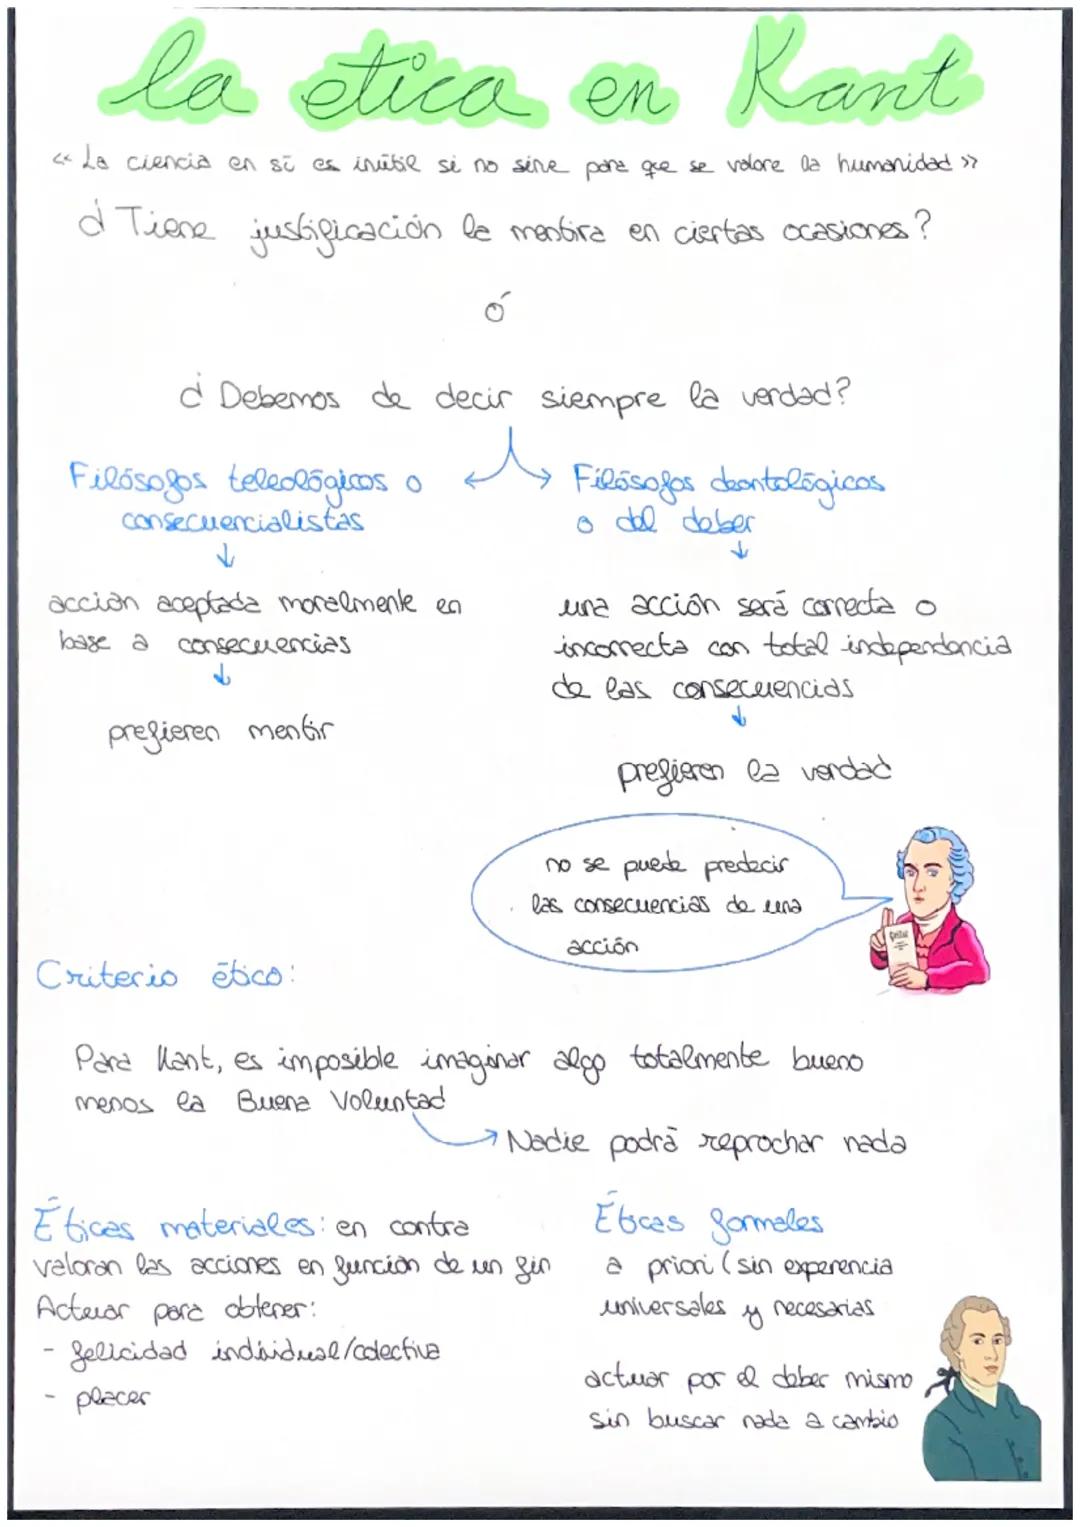 la etica en Kant
<< La ciencia en sí es inútil si no sirve para que se valore la humanidad >>
¿Tiene justificación la mentira en ciertas ocasiones?
ó
¿Debemos de decir siempre la verdad?
Filósofos teleológicos o
consecuencialistas
acción aceptada moralmente en
base a consecuencias
prefieren mentir
Filósofos deontológicos
o del deber
una acción será correcta o
incorrecta con total independencia
de las consecuencias
prefieren la verdad
no se puede predecir
las consecuencias de una
acción
Criterio ético:
Para Kant, es imposible imaginar algo totalmente bueno
menos la Buena Voluntad
Nadie podrá reprochar nada
Éticas materiales: en contra
valoran las acciones en función de un fin
Actuar para obtener:
- felicidad individual/colectiva
- placer
Éticas formales
a priori (sin experencia
universales y necesarias
actuar por el deber mismo
sin buscar nada a cambio